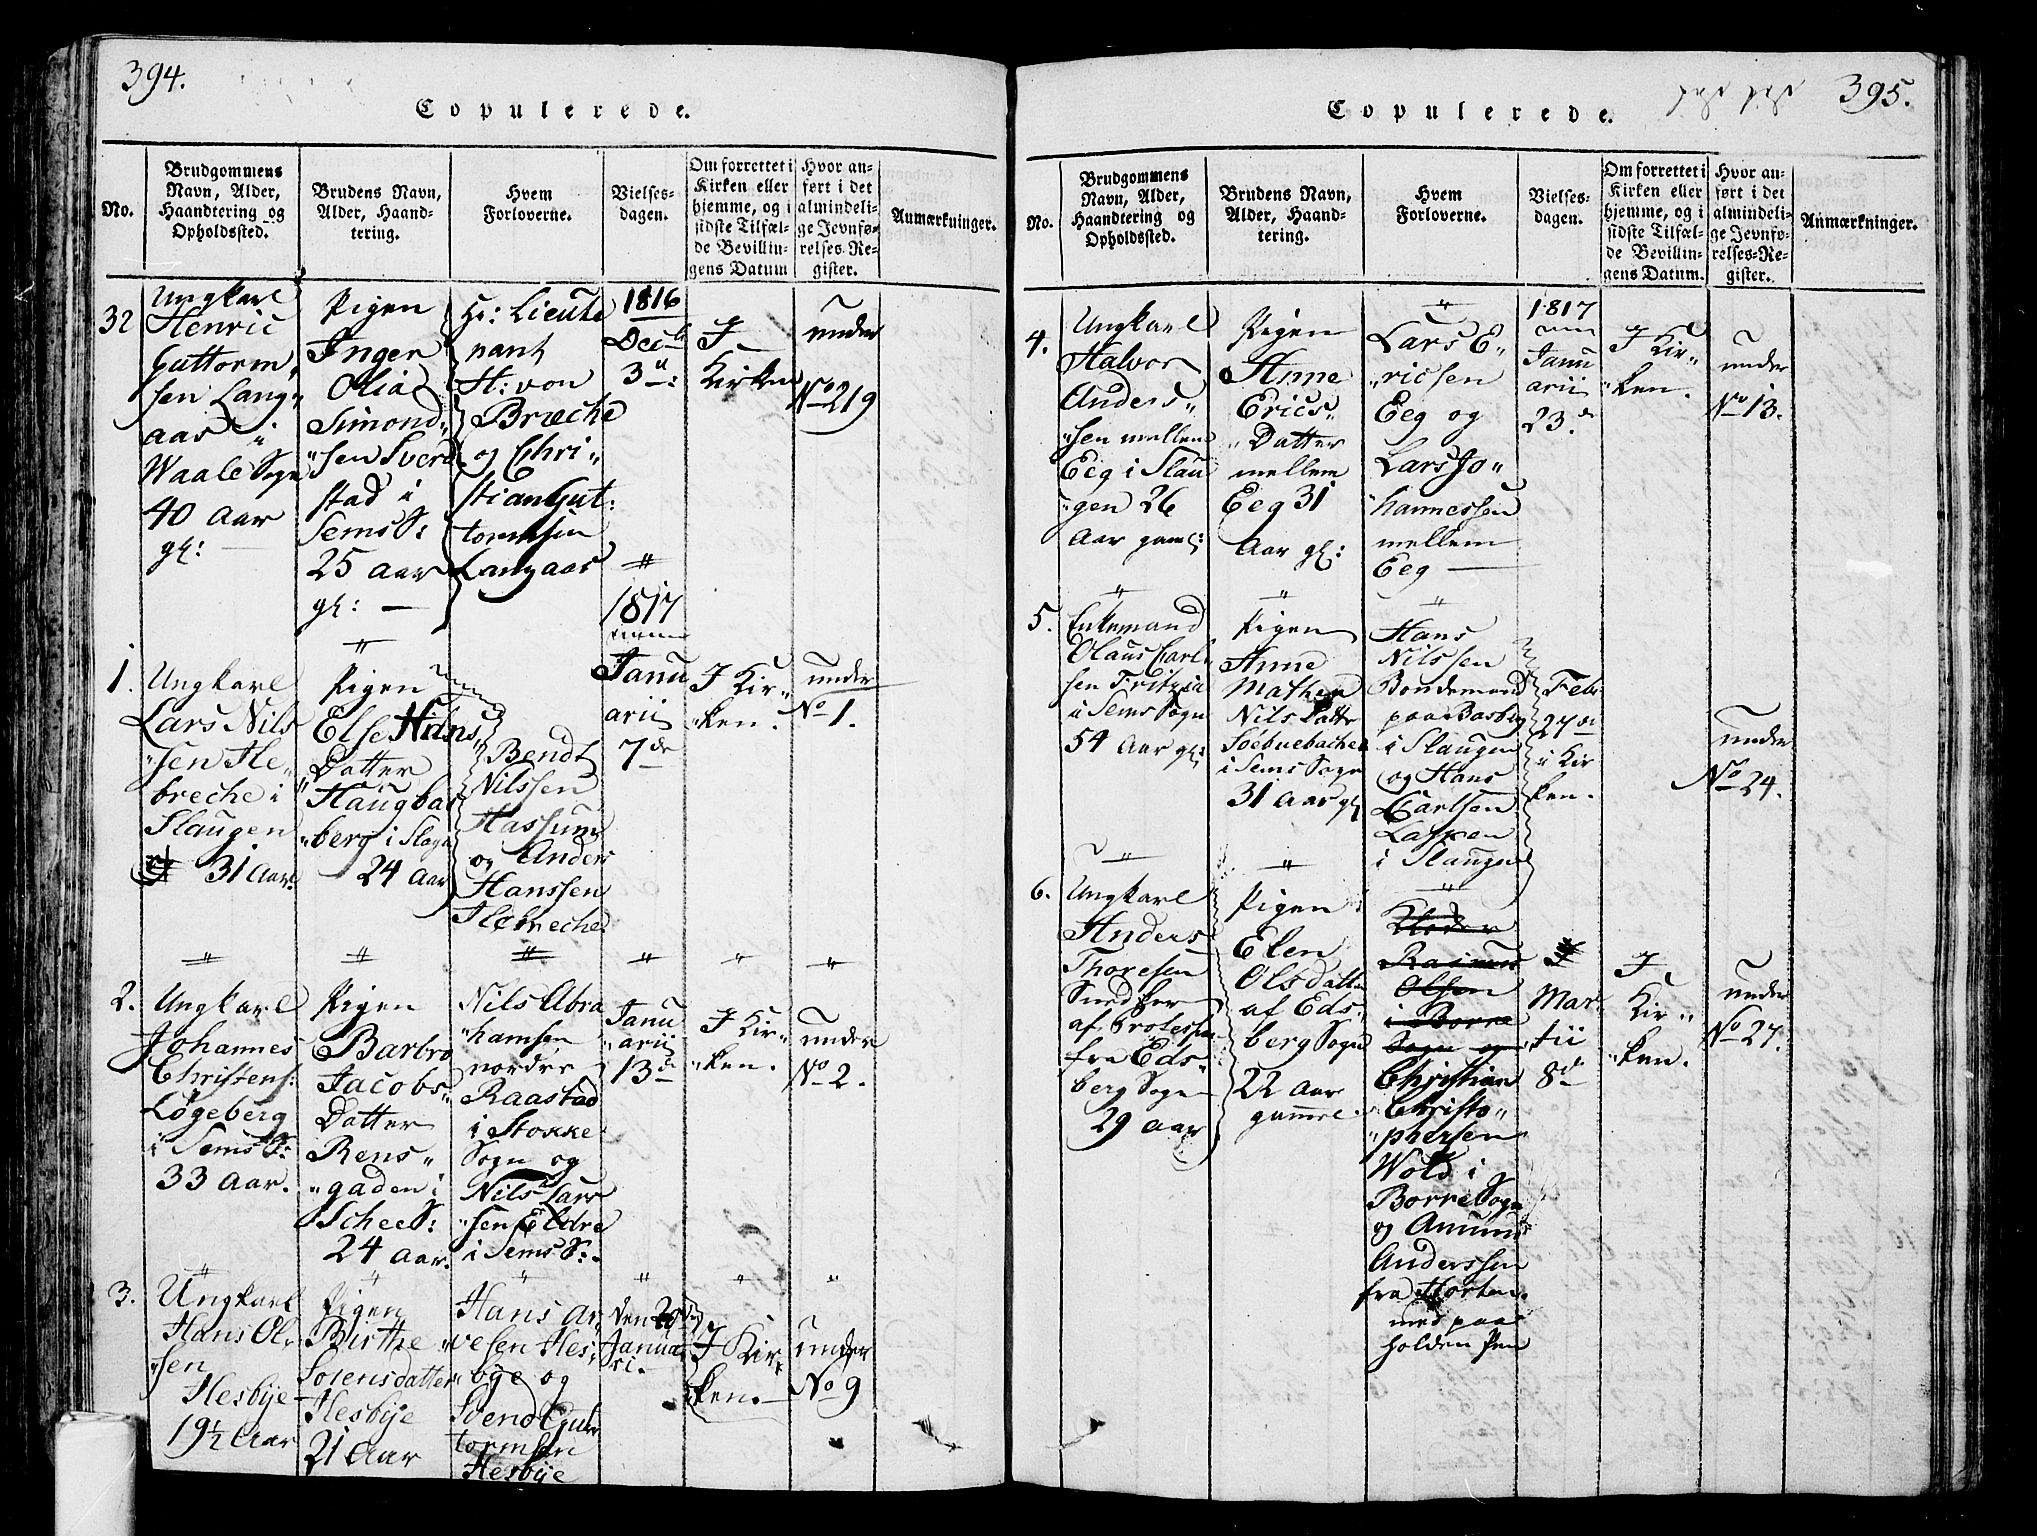 394.
Copulerede.
No.
Brudgommens
Navn, Alder,
Haandtering og
Opholdssted.
Brudens Navn,
Alder, Haand-
tering.
Hvem
Forloverne.
Vielses-
dagen.
Om forrettet i
Kirken eller
hjemme, og i
sidste Tilfæl-
de Bevillin-
gens Datum
Hvor an-
ført i det
almindeli-
ge Jevnfø-
relses-Re-
gister.
Anmærkninger.
32
Ungkarl
Henric
Guttorm„
sen Lang„
aas i
Waale Sogn
40 Aar
gl:
Pigen
Inger
Olia
Simond„
„sen Sverd
stad i
Sems S:
25 aar
gl:
Hr: Lieute
nant
H: von
Bræche
og Chri„
stian Gut:
tormsen
Langaas
1816
Decbr
3die
I
Kirken
under
No 219
1.
Ungkarl
Lars Nils
„sen Fle„
breche i
Slaugen
31 Aar.
Pigen
Else Hans„
Datter
Haugbas
„berg i Slage
24 Aar
Bendt
Nilssen
Hassum
og Anders
Hanssen
Flebreche
1817
Janu
arii
7de
I Kir„
„ken.
under
No 1.
2.
Ungkarl
Johannes
Christens:
Løgeberg
i Sems S:
33 Aar.
Pigen
Barbro
Jacobs„
Datter
Rens„
„gaden i
Schee S:
24 Aar.
Nils Abra
„hamsen
nordre
Raastad
i Stokke
Sogn og
Nils Lars
„sen Eldre
i Sems S:
Janu
„arii
13de
I Kir„
„ken.
under
No 2.
3.
Ungkarl
Hans Ol„
„sen
Hesbye
19½ Aar
Pigen
Birthe
Sorensdatter
Hesbye
21 Aar
Hans Ar„
„vesen Hes„
„bye og
Svend Gut
tormsen
Hesbye
den
Janua
ri.
I Kir
ken.
under
No 9
395.
Copulerede.
No.
Brudgommens
Navn, Alder,
Haandtering og
Opholdssted.
Brudens Navn,
Alder, Haand-
tering.
Hvem
Forloverne.
Vielses-
dagen.
Om forrettet i
Kirken eller
hjemme, og i
sidste Tilfæl-
de Bevillin-
gens Datum.
Hvor an-
ført i det
almindeli-
ge Jevnfø-
relses-Re-
gister.
Anmærkninger.
4.
Ungkarl
Halvor
Anders„
„sen mellem
Eeg i Slau
„gen 26
Aar gaml:
Pigen
Anne
Erics„
„Datter
mellem
Eeg 31
Aar gl:
Lars E„
„ricsen
Eeg og
Lars Jo„
„hannessen
mellem
Eeg
1817
Janu
arii
23.
I Kir„
„ken.
under
No 13.
5.
Enkemand
Olaus Carl„
sen Fritzia
i Sems Sogn
54 Aar gl:
Pigen
Anne
Mathea
Nils Datter
Søebuebachen
i Sems Sogn
31 Aar gl
Hans
Nilssen
Bondemand
paa Basberg
i Slaugen
og Hans
Carlsen
Lasken
i Slaugen
Febr
27de
i Kir
ken.
under
No 24.
6.
Ungkarl
Anders
Thoresen
Smed her
af
fra Eds„
berg Sogn
29 Aar
Pigen
Elen
Olsdatter
af Eds„
berg Sogn
22 Aar
gamel
Rasmus
Olsen
i Borre
Sogn og
Christian
Christo„
„phersen
Wold i
Borre Sogn
og Amund
Anderssen
fra Horten.
med paa
holden Pen
Mar„
„tii
8de
I
Kir„
„ken.
under
No 27.